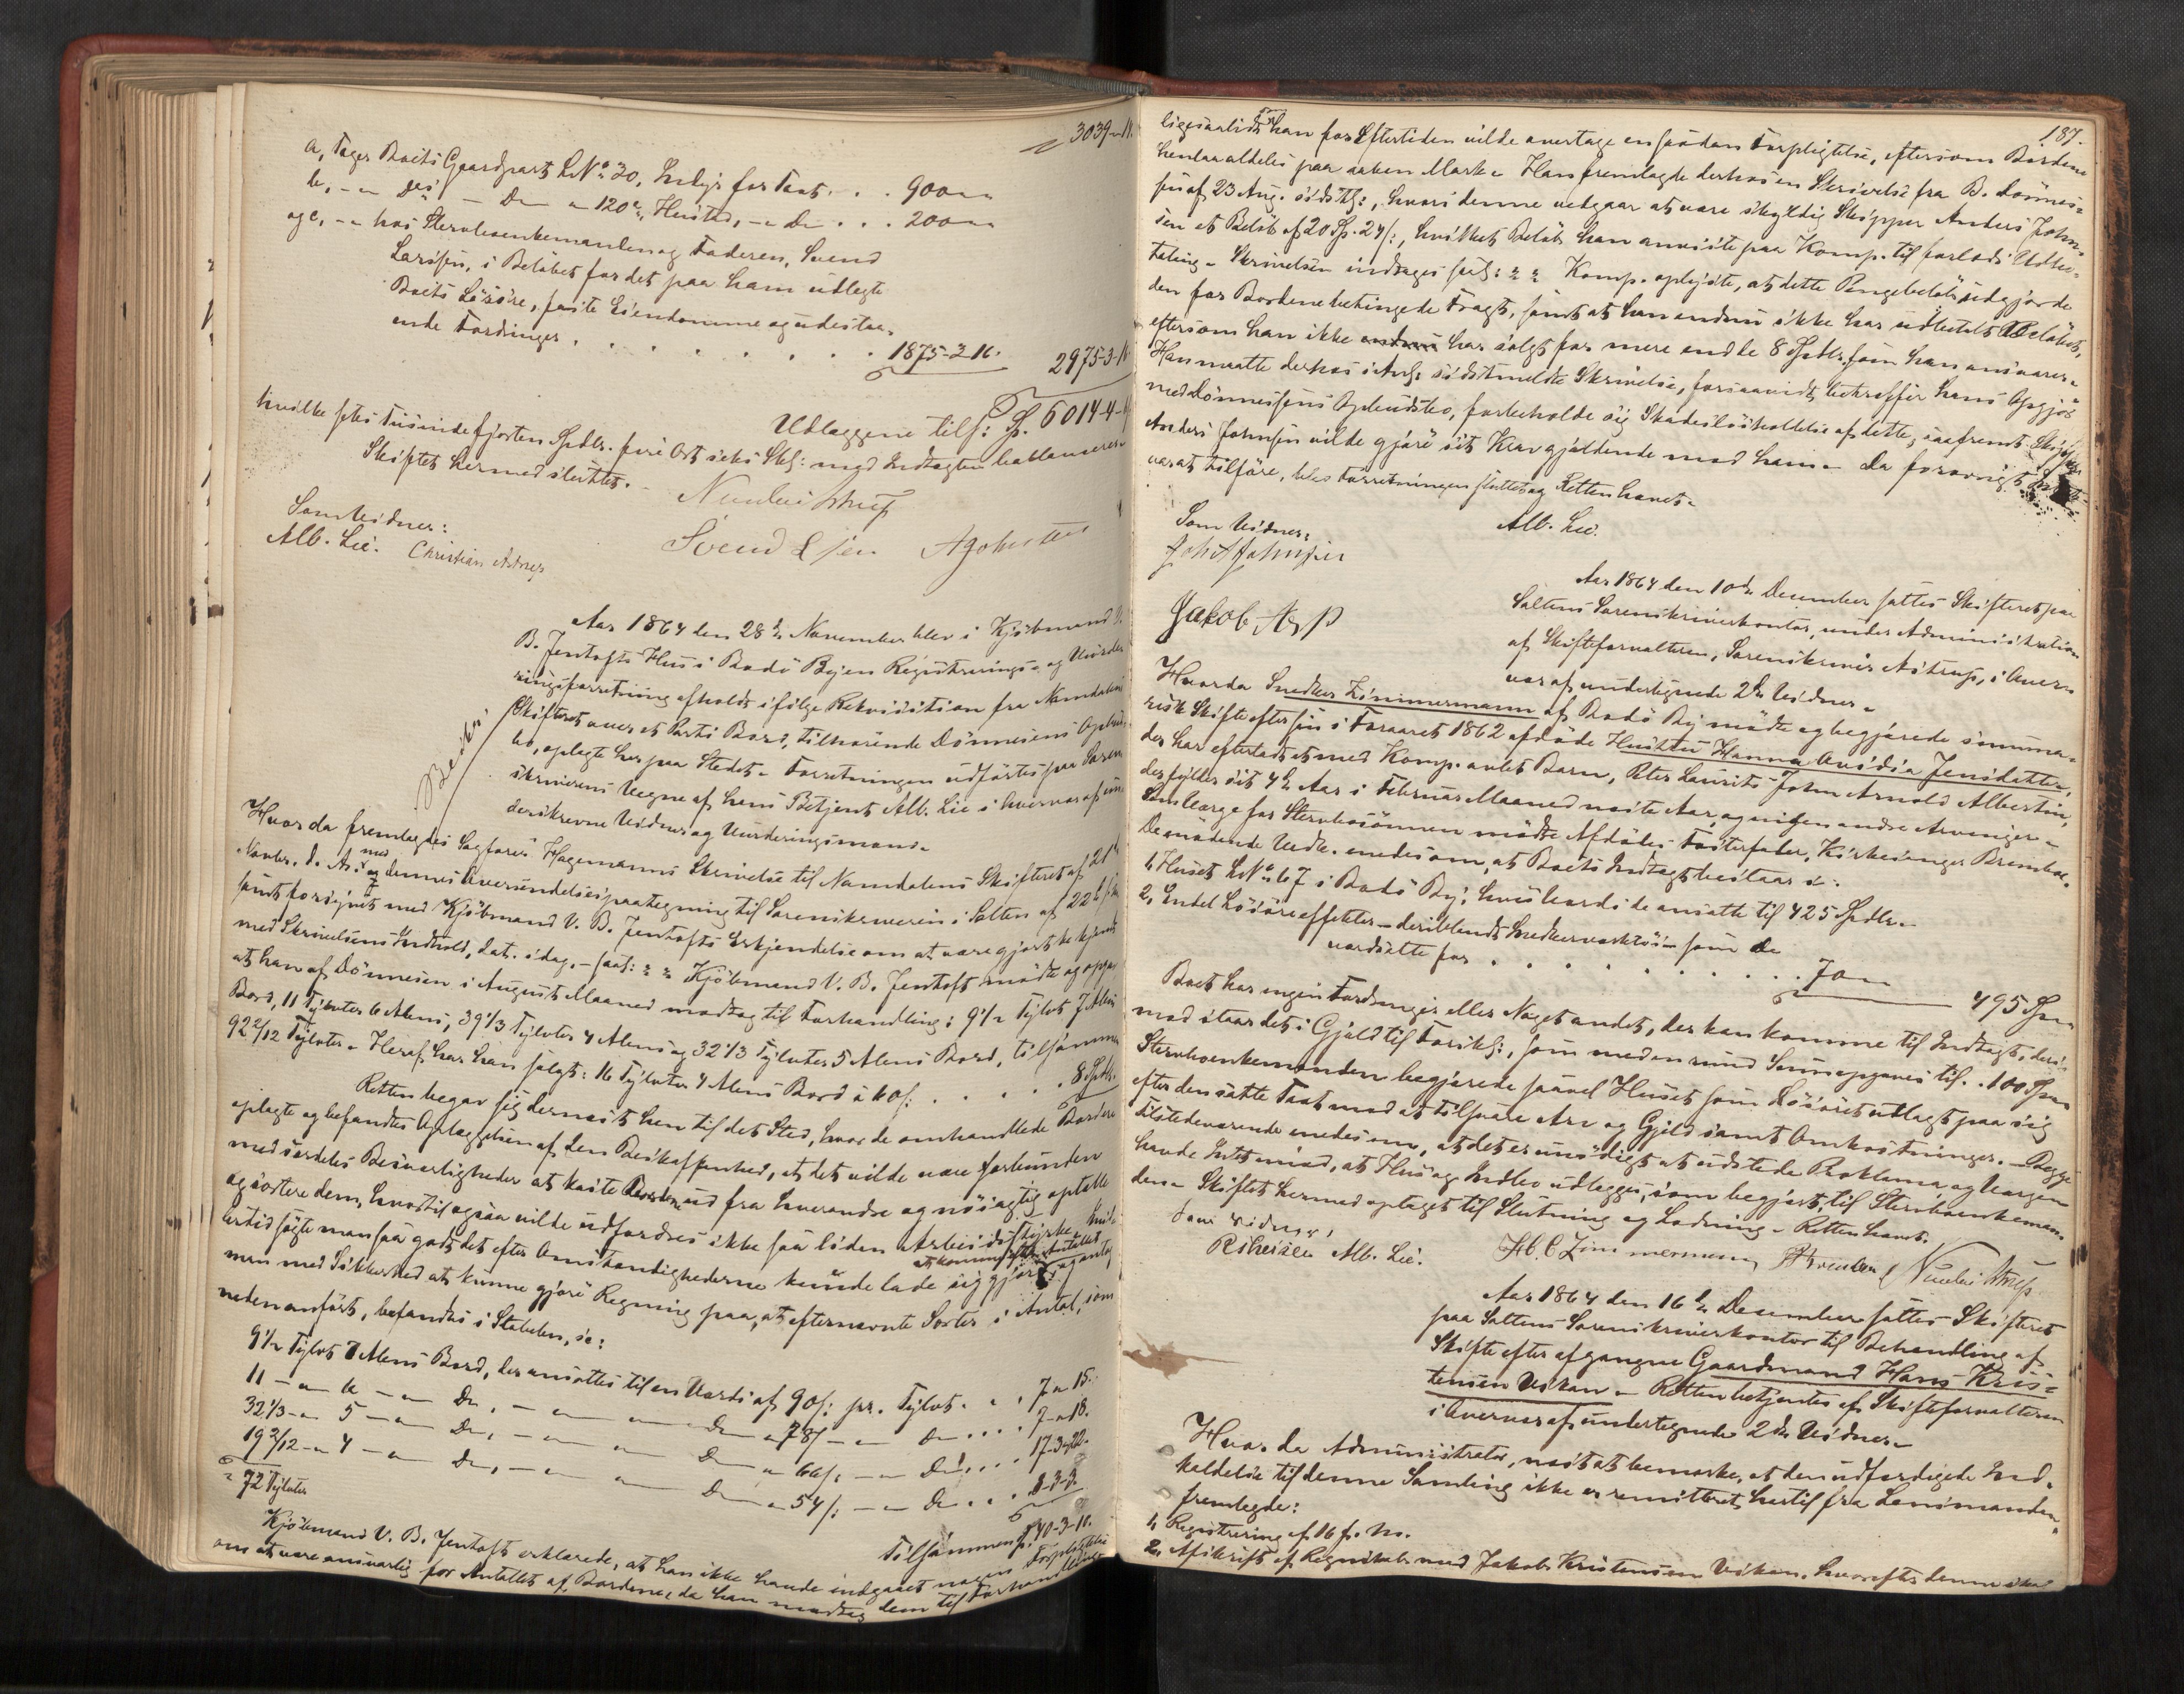 3039
a, Tages Boets Gaardpart L.No 20, Indyr for Taxt . . . 900 " "
b, - " Des - Do " 120c, Husted, - " Do . . . 200 " "
og c, - " hos Sterboenkemanden og Faderen, Svend
Larssen, i Beløbet for det paa ham udlagte
Boets Løsøre, faste Eiendomme og udestaa-
ende Fordringer . . . . . . . 1875-3-16.
2975-3-16
Udlæggene tils: Sp. 6014-4-
hvilke sex Tusinde fjorten Spdlr. fire Ort sex Skl: med Indtægten ballancerer
Skiftet hermed sluttet.
Som Vidner:
Alb. Lie. Christian Astrup
Svend L sen
Aar 1864 den 28de November blev i Kjøbmand V.
B. Jentofts Huus i Bodø Byen Registrerings- og Vurde-
ringsforretning afholdt ifølge Rekvisition fra Namdalens
Skifteret over et Parti Bord, tilhørende Dønnesens Opbuds-
bo, oplagte her paa Stedet. Forretningen udførtes paa Soren-
skriverens Vegne af hans Betjent Alb. Lie i Overvær af un-
derskrevne Vidner og Vurderingsmænd.
Hvorda fremlagdes Sagfører Hagemanns Skrivelse til Namdalens Skifteret af 21de
Novbr. d. A. med dennes Oversendelsespaategning til Sorenskriveren i Salten af 22de s. M.
samt forsynet med Kjøbmand V. B. Jentofts Erkjendelse om at være gjort bekjendt
med Skrivelsens Indhold, dat. i dag. - saal: " " Kjøbmand V. B. Jentoft mødte og opgav
at han af Dønnesen i August Maaned modtog til Forhandling: 9 1/2 Tylvt 7 Alens
Bord, 11 Tylvter 6 Alens, 39 1/3 Tylvter 4 Alens og 32 1/3 Tylvter 5 Alens Bord, tilsammen
92 2/12 Tylvter. Heraf har han solgt: 16 Tylvter 4 Alens Bord à 60 s: . . . . 8 Spdlr.
Retten begav sig dernæst hen til det Sted, hvor de omhandlede Bordere
oplagte og befandtes Oplæggelsen af den Beskaffenhed, at det vilde være forbunden
med særdeles Besværligheder at kaste Bordene ud fra hverandre og nøiagtig optælle
og sortere dem, hvortil ogsaa vilde udfordres ikke saa liden Arbeidsstyrke. Imid-
lertid søgte man saa godt det efter Omstændighederne kunde lade sig gjøre at komme efter Antallet og antog
man med Sikkerhed at kunne gjøre Regning paa, at efternævnte Sorter i Antal, som
nedenanført, befandtes i Stabelen, s:
9 1/2 Tylvt 7 Alens Bord, der ansattes til en Værdi af 90 s: pr. Tylvt . . . 7 " 15.
11 - " 6 - " Do, - " " Do " 78 s: - " Do . . . 7 " 18.
32 1/3 - " 5 - " Do, - " " Do " 66 s: - " Do . . . 17-3-22.
19 2/12 - " 4 - " Do, - " " Do " 54 s: - " Do . . . 8-3-3.
72 Tylvter
Tilsammen Sp. 40-3-10.
Kjøbmand V. B. Jentoft erklærede, at han ikke havde indgaaet nogen Forpligtelse
om at være ansvarlig for Antallet af Bordene, da han modtog dem til Forhandling
187.
ligesaalidt som han for Eftertiden vilde overtage en saadan Forpligtelse, eftersom Bordene
henlaa aldeles paa aaben Mark. Han fremlagde derhos en Skrivelse fra B. Dønnes-
sen af 23 Aug. sidstl:, hvori denne vedgaar at være skyldig Skipper Anders John-
sen et Beløb af 20 Sp. 24 s:, hvilket Beløb han anviste paa Komp. til forlods Udbe-
taling. Skrivelsen indtages saal: " " Komp. oplyste, at dette Pengebeløb udgjorde
den for Bordene betingede Fragt, samt at han endnu ikke har udbetalt Beløbet,
eftersom han ikke endnu har solgt for mere end de 8 Spdlr. som han ansvarer.
Han maatte derhos i Anl: sidstmeldte Skrivelse, forsaavidt betræffer hans Opgjør
med Dønnessens Opbudsbo, forbeholde sig Skadesløsholdelse af dette, saafremt Skipper
Anders Johnsen vilde gjøre sit Krav gjældende mod ham. Da forøvrigt Intet
var at tilføre, blev Forretningen sluttet og Retten hævet.
Alb. Lie.
Som Vidner:
Joh A Johnsen
Jakob Asp
Aar 1864 den 10de December sattes Skifteret paa
Saltens Sorenskriverkontor, under Administration
af Skifteforvalteren, Sorenskriver Astrup, i Over-
vær af undertegnede 2de Vidner.
Hvorda Snedker Zimmermann af Bodø By mødte og begjærede summa-
risk Skifte efter sin i Foraaret 1862 afdøde Hustru Hanna Ovidia Jensdatter,
der har efterladt et med Komp. avlet Barn, Peter Laurits John Arnold Albertin,
der fylder sit 4de Aar i Februar Maaned næste Aar, og ingen andre Arvinger.
Som Værge for Sterbosønnen mødte Afdødes Fosterfader, Kirkesanger Brembo.
De mødende Vedk. enedes om, at Boets Indtægt bestaar i:
1, Huset L.No 67 i Bodø By, hvis Værdi de ansatte til 425 Spdlr.
2, Endel Løsøreeffekter - deriblandt Snedkerværktøi - som de
værdsatte for . . . . . . . . 70 " " 495 Sp " "
Boet har ingen Fordringer eller Noget andet, der kan komme til Indtægt, deri-
mod staar det i Gjæld til Forskj:, som med en rund Sum opgaves til . . 100 Sp " "
Sterboenkemanden begjærede saavel Huset som Løsøret udlagt paa sig
efter den satte Taxt mod at tilsvare Arv og Gjæld samt Omkostninger. Begge
Tilstedeværende enedes om, at det er unødigt at udstede Proklama og Værgen
havde Intet imod, at Huus og Indbo udlægges, som begjært, til Sterboenkeman-
den. Skiftet hermed optaget til Slutning og Lodning. Retten hævet.
Som Vidner:
Alb. Lie. Zimmermann
Aar 1864 den 16de December sattes Skifteret
paa Saltens Sorenskriverkontor til Behandling af
Skifte efter afgangne Gaardmand Hans Kris-
tensen Vikan. Retten betjentes af Skifteforvalteren
i Overvær af undertegnede 2de Vidner.
Hvorda Administrator, næst at bemærke, at den udfærdigede Ind-
kaldelse til denne Samling ikke er remitteret hertil fra Lensmanden,
fremlagde:
1, Registrering af 16 f. M.
2, Afskrift af Regnskab med Jakob Kristensen Vikan, hvorefter denne skal